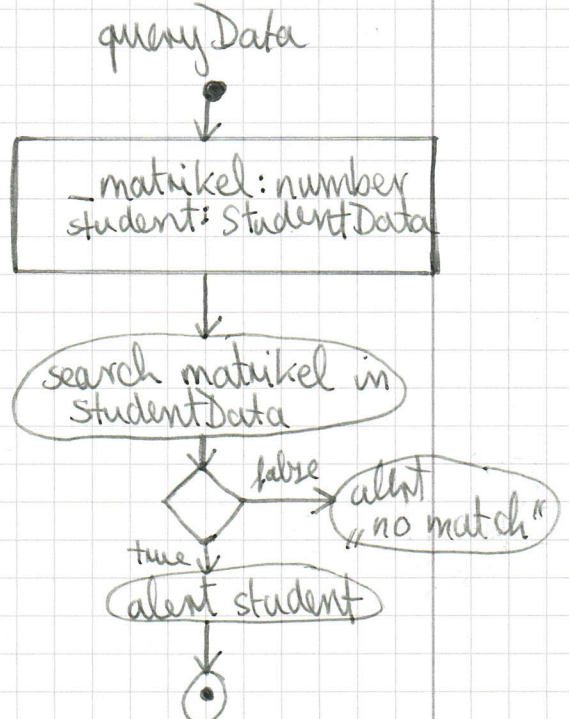 queryData
_matrikel: number
student: StudentData
search matrikel in
StudentData
false
alert
„no match"
true
alert student